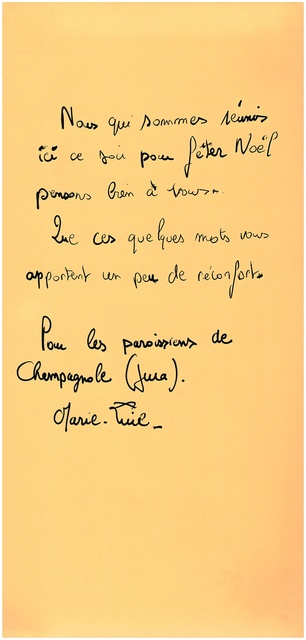 Nous qui sommes réunis
ici ce soir pour fêter Noël
pensons bien à vous.
Que ces quelques mots vous
apportent un peu de réconfort.
Pour les paroissiens de
Champagnole (Jura).
Marie.